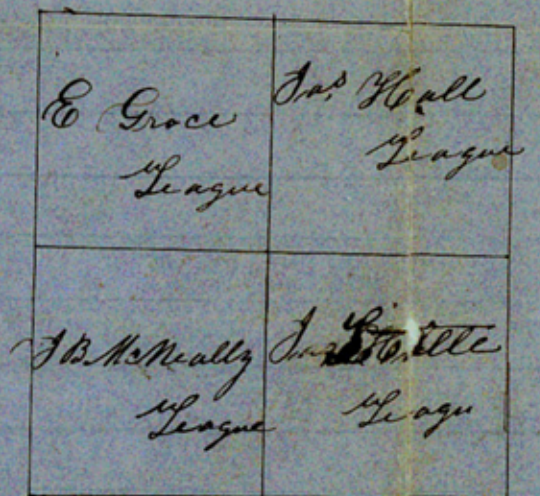 E Grace
League
Jas Hall
League
J B McNeally
League
Jas
Leagu